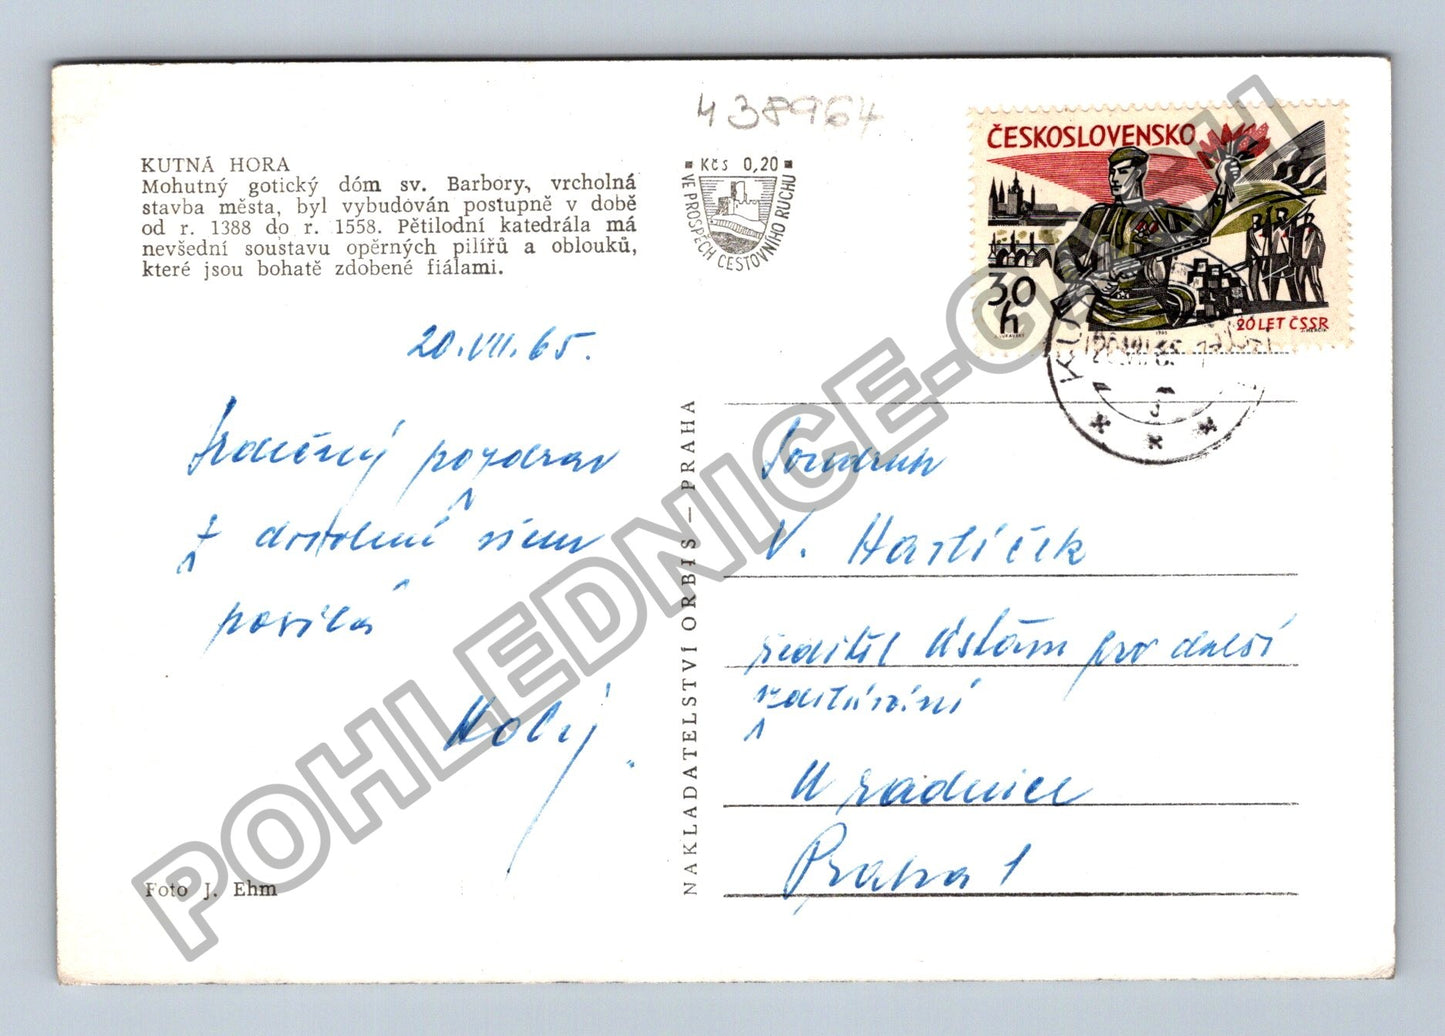 438964
KUTNÁ HORA
Mohutný gotický dóm sv. Barbory, vrcholná
stavba města, byl vybudóván postupně v době
od r. 1388 do r. 1558. Pětilodní katedrála má
nevšední soustavu opěrných pilířů a oblouků,
které jsou bohatě zdobené fiálami.
Kčs 0,20
VE PROSPĚCH CESTOVNÍHO RUCHU
ČESKOSLOVENSKO
30
h
20 LET ČSSR
20.VII.65.
Srdečný pozdrav
z dovolené všem
posílá
Holý.
NAKLADATELSTVÍ ORBIS — PRAHA
Soudruh
V. Havlíček
ředitel Ústavu pro další
vzdělávání
U radnice
Praha 1
Foto J. Ehm
POHLEDNICE-CZECH